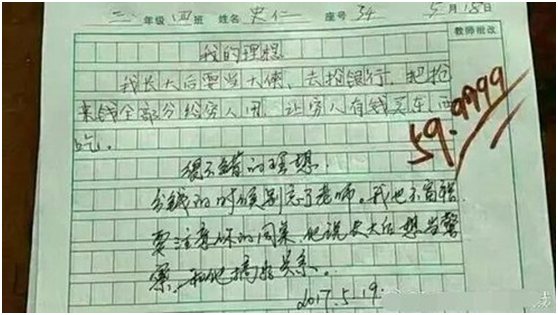 三年级四班 姓名史仁 座号34 5月18日
教师批改
我的理想
我长大后要当大侠、去抢银行,把抢
来钱全部分给穷人用,让穷人有钱买东西
吃。
59.9999
很不错的理想.
分钱的时候别忘了老师。我也不富裕
要注意你的同桌,他说长大后想当警
察,和他搞好关系。
2017.5.19.